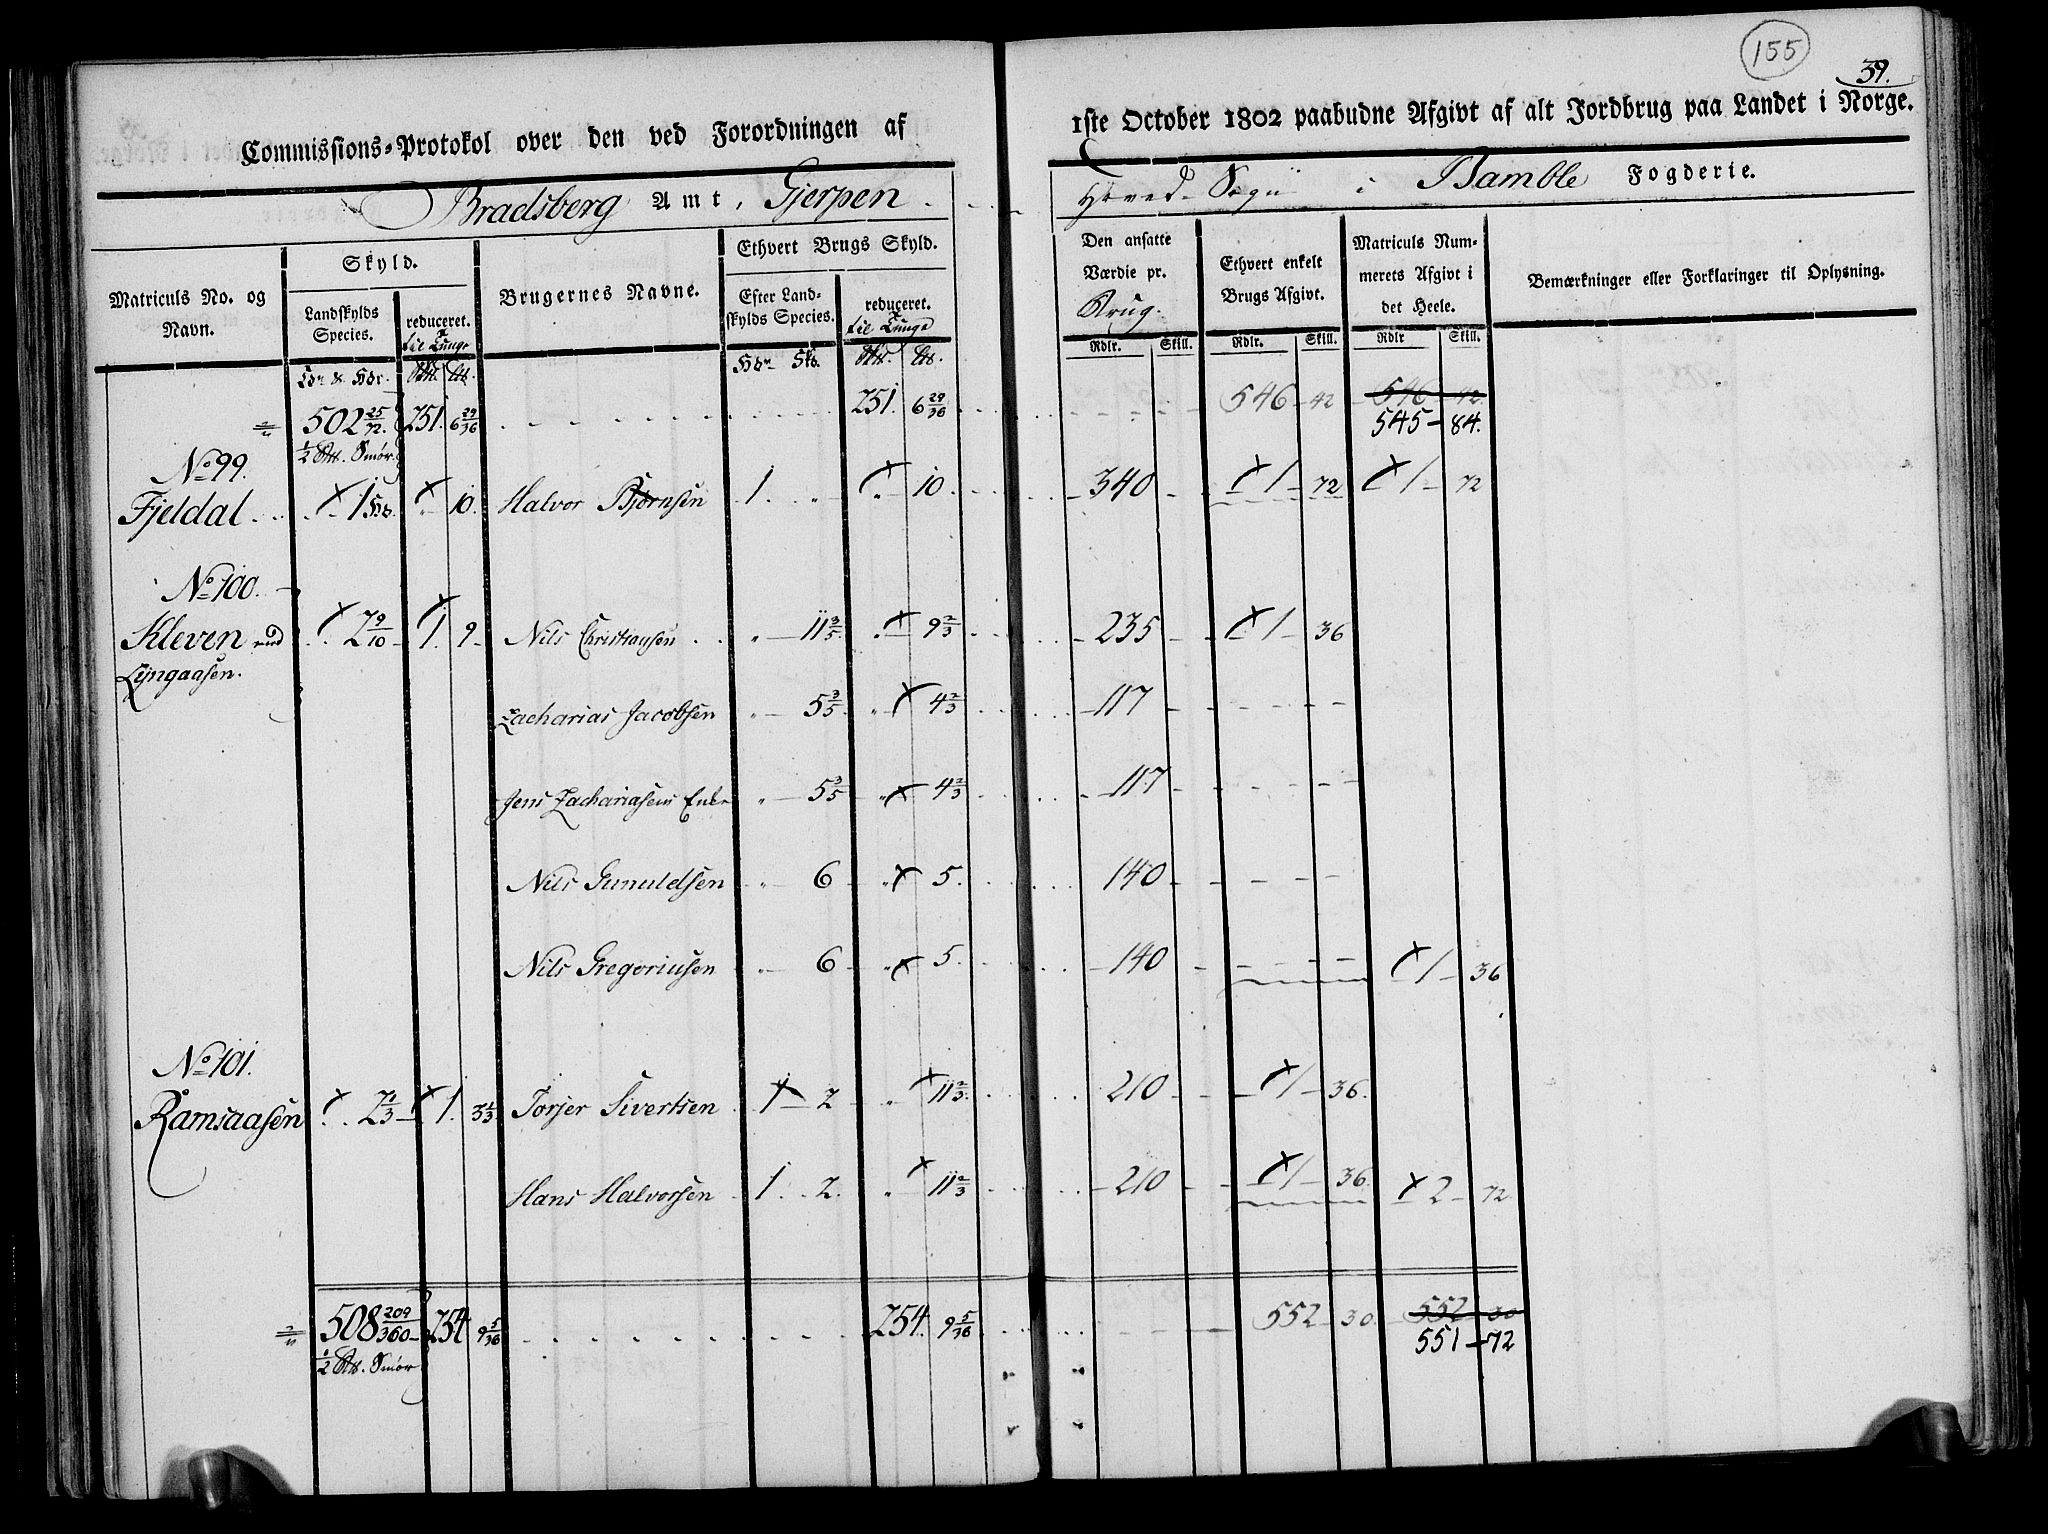 155
39.
Commissions-Protokol over den ved Forordningen af 1ste October 1802 paabudne Afgivt af alt Jordbrug paa Landet i Norge.
Bradsberg Amt, Gjerpen Hoved-Sogn i Bamble Fogderie.
Matriculs No. og Navn.
Skyld.
Landskylds Species.
reduceret. til Tunge
Brugernes Navne.
Ethvert Brugs Skyld.
Efter Landskylds Species.
reduceret. til Tunge
Den ansatte Værdie pr. Krug.
Ethvert enkelt Brugs Afgivt.
Matriculs Nummerets Afgivt i det Heele.
Bemærkninger eller Forklaringer til Oplysning.
Rdlr. Skill. Rdlr. Skill. Rdlr Skill.
502 25/72. 251. 6 29/36 251. 6 29/36 546 - 42 546 - 42
1/2 Smør. 545 - 84.
No 99.
Fjeldal 1 Hd. " 10. Halvor Bjørnsen 1. " " 10. 340 1 - 72 1 - 72
No 100.
Kleven med 2 9/10 1. 9 Nils Christiansen " 11 3/5. " 9 2/3 235 1 - 36
Lyngaasen.
Zacharias Jacobsen " 5 3/5. " 4 2/3 117
Jens Zachariasens Enke " 5 3/5 " 4 2/3 117
Nils Gunuldsen " 6 " 5. 140
Nils Gregoriusen " 6 " 5. 140 1 - 36
No 101.
Ramsaasen 2 1/3 1. 3 1/3 Torjer Sivertsen 1 - 2 " 11 2/3. 210 1 - 36.
Hans Halvorsen 1. 2. " 11 2/3 210 1 - 36. 2 - 72
508 209/360 254 9 5/36 254. 9 5/36 552 - 30 552 - 30
1/2 Smør 551 - 72